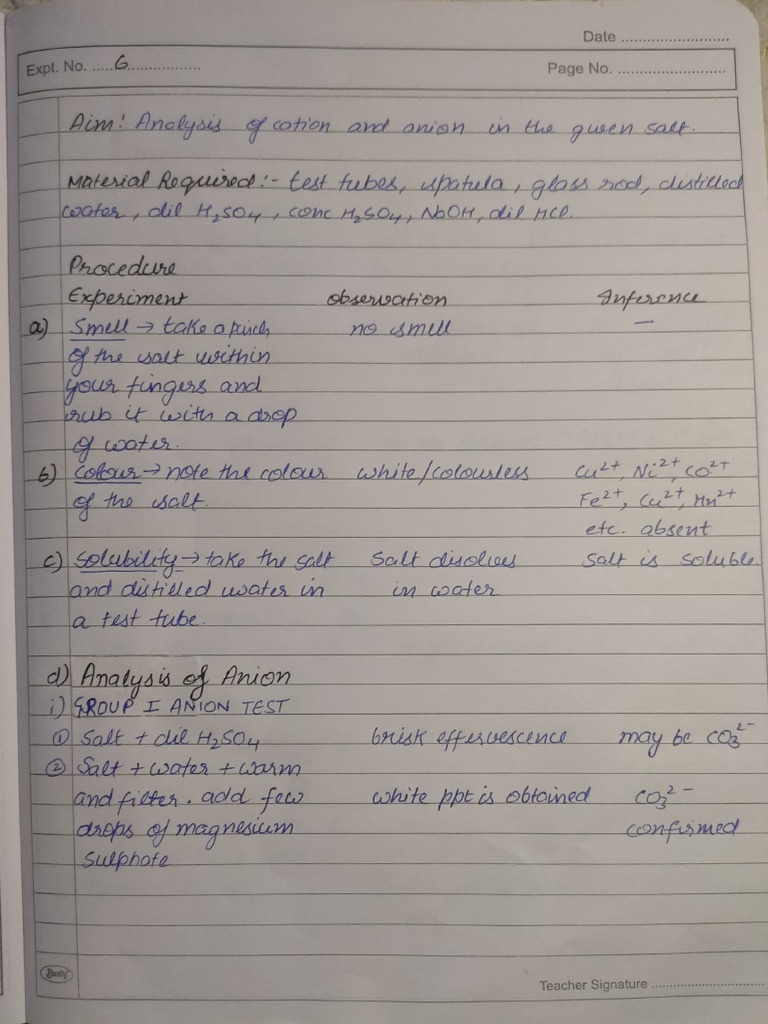 Date
Expt. No. 6
Page No.
Aim: Analysis of cation and anion in the given salt.
Material Required:- test tubes, spatula, glass rod, distilled
water, dil H₂SO₄, conc H₂SO₄, NaOH, dil HCl.
Procedure
Experiment observation Inference
a) Smell → take a pinch no smell —
of the salt within
your fingers and
rub it with a drop
of water.
b) Colour → note the colour white/colourless Cu²⁺, Ni²⁺, Co²⁺
of the salt. Fe²⁺, Cu²⁺, Mn²⁺
etc. absent
c) Solubility → take the salt Salt disolves Salt is soluble.
and distilled water in in water
a test tube.
d) Analysis of Anion
i) GROUP I ANION TEST
① Salt + dil H₂SO₄ brisk effervescence may be CO₃²⁻
② Salt + water + warm
and filter. add few white ppt is obtained CO₃²⁻
drops of magnesium confirmed
Sulphate
Teacher Signature